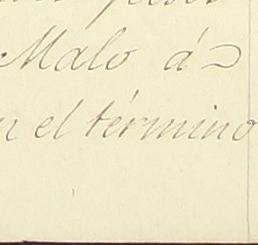 Malo á
el término